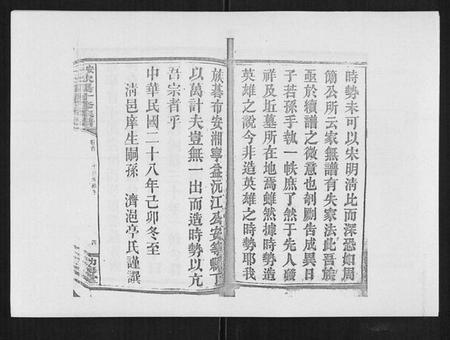 時勢未可以宋明清比而深恐如周
簡公所云家無譜有失家法此吾族
亟於續譜之微意也剞劂告成異日
子若孫手執一帙庶了然于先人發
祥及坵墓所在地焉雖然據時勢造
英雄之說今非造英雄之時勢耶我
族暮布安湘寧益沅江公安等縣丁
以萬計夫豈無一出而造時勢以亢
吾宗者乎
中華民國二十八年己卯冬至
清邑庠生嗣孫 濟滄亭氏謹譔